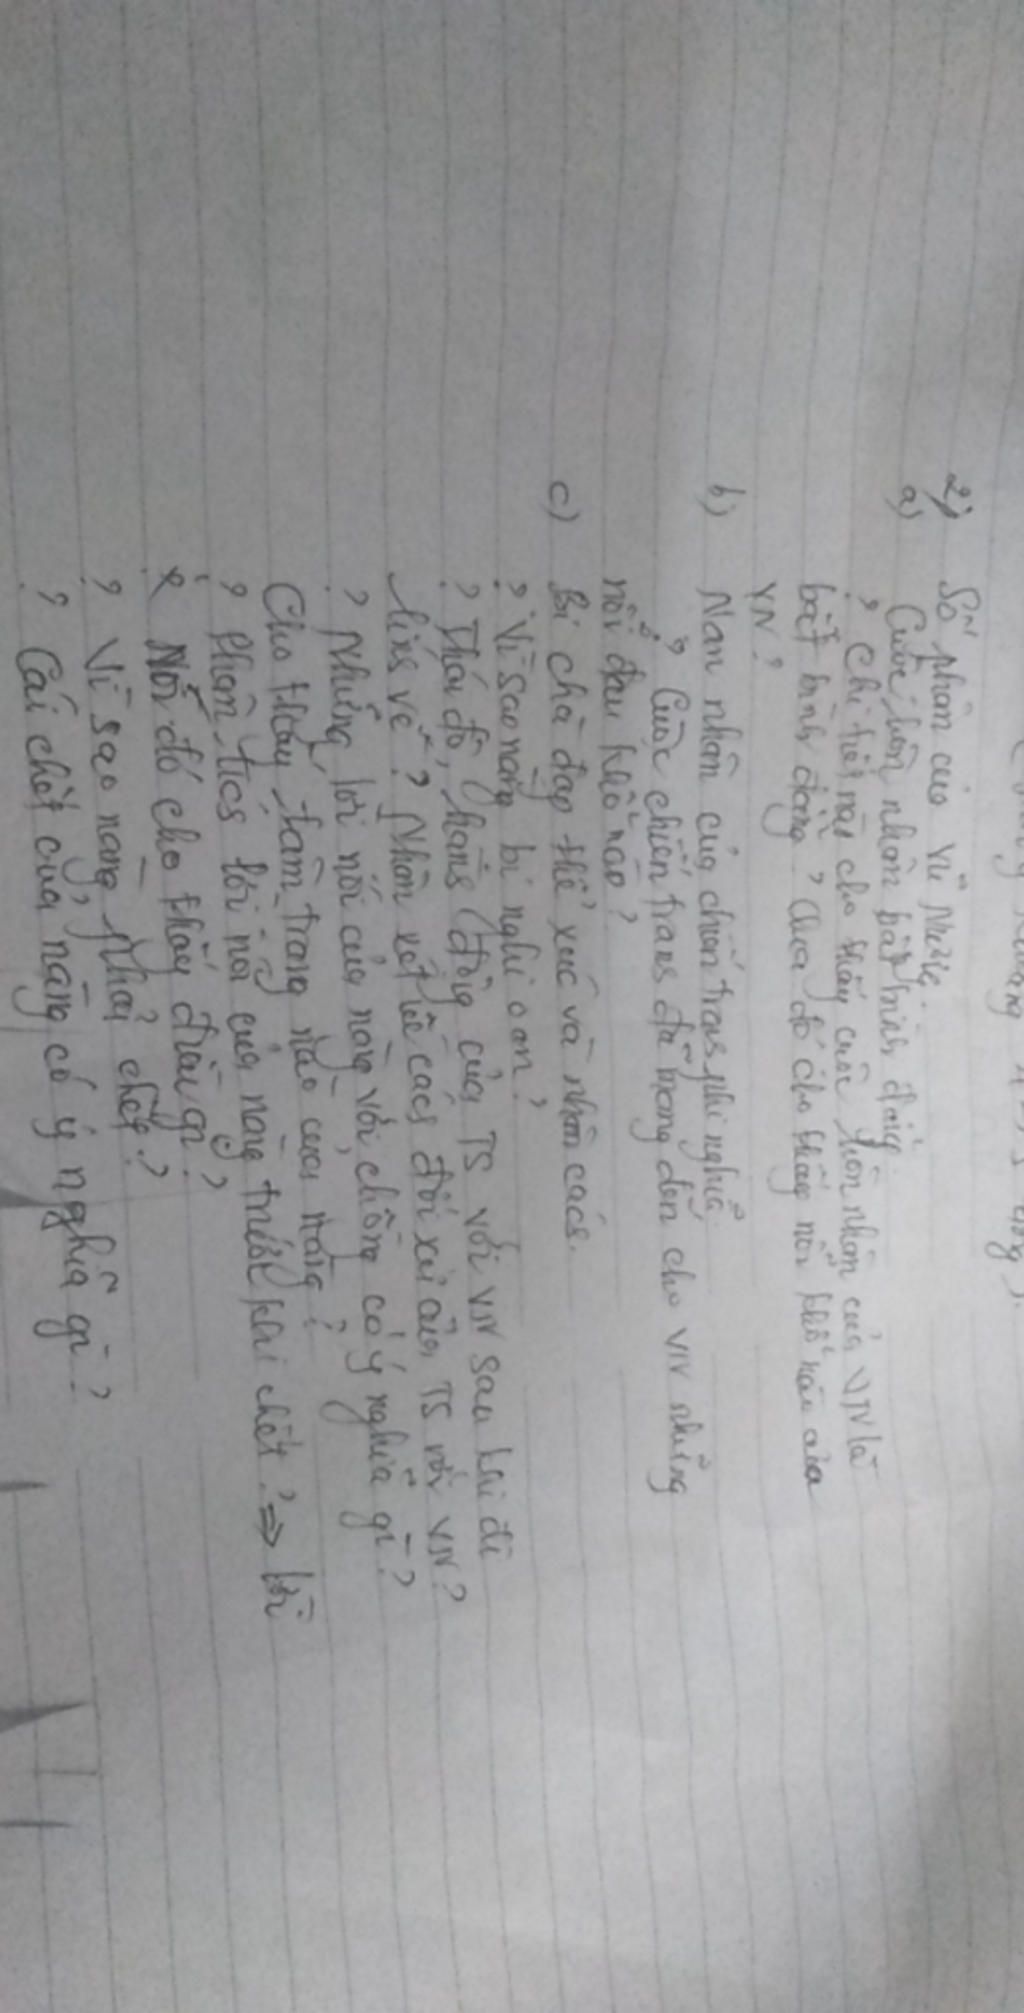 2) Số phận của Vũ Nương.
a) Cuộc hôn nhân bất bình đẳng.
? Chi tiết nào cho thấy cuộc hôn nhân của VN là
bất bình đẳng? Qua đó cho thấy nỗi khổ nào của
VN?
b) Nạn nhân của chiến tranh phi nghĩa.
? Cuộc chiến tranh đã mang đến cho VN những
nỗi đau khổ nào?
c) Bị chà đạp thể xác và nhân cách.
? Vì sao nàng bị nghi oan?
? Thái độ, hành động của TS với VN sau khi đi
lính về? Nhận xét về cách đối xử của TS với VN?
? Những lời nói của nàng với chồng có ý nghĩa gì?
Cho thấy tâm trạng nào của nàng?
? Phân tích lời nói của nàng trước khi chết? => lời
nói đó cho thấy điều gì?
? Vì sao nàng phải chết?
? Cái chết của nàng có ý nghĩa gì?